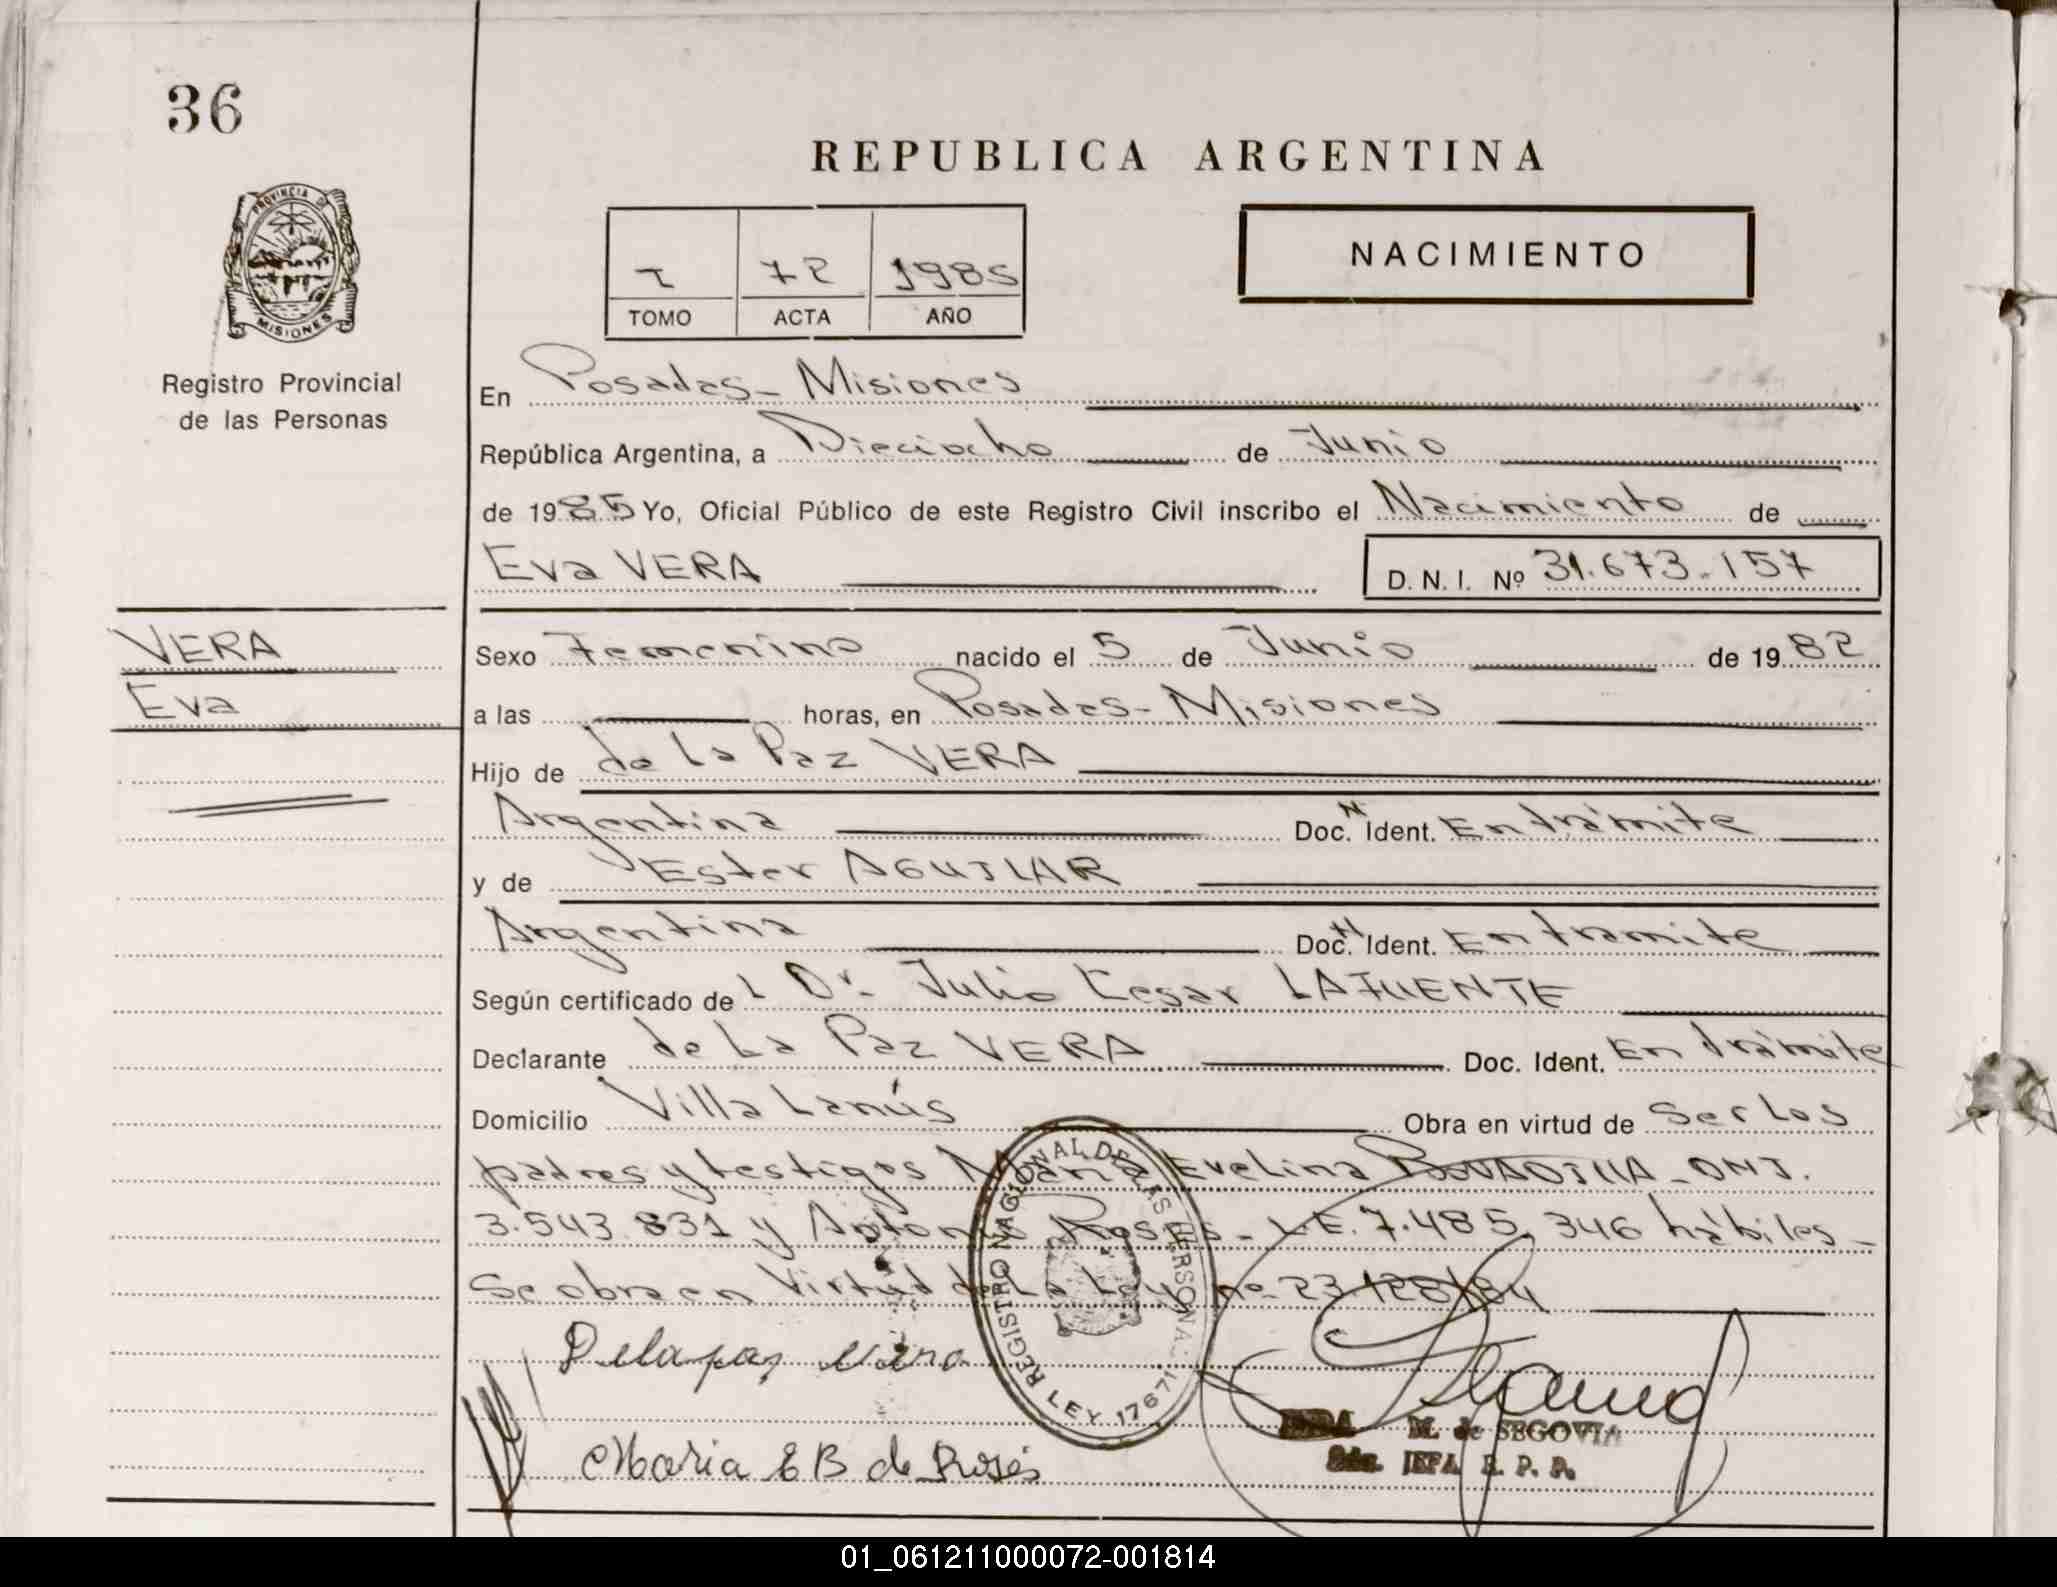 36
REPUBLICA ARGENTINA
PROVINCIA DE
MISIONES
I 72 1985
TOMO ACTA AÑO
NACIMIENTO
Registro Provincial
de las Personas
En Posadas - Misiones
República Argentina, a Dieciocho de Junio
de 1985 Yo, Oficial Público de este Registro Civil inscribo el Nacimiento de
Eva VERA D.N.I. Nº 31.673.157
VERA
Eva
Sexo Femenino nacido el 5 de Junio de 1982
a las horas, en Posadas - Misiones
Hijo de de La Paz VERA
Argentina Doc. Ident. En trámite
y de Ester AGUILAR
Argentina Doc. Ident. En tramite
Según certificado de L Dr. Julio Cesar LAFUENTE
Declarante de La Paz VERA Doc. Ident. En trámite
Domicilio Villa Lanús Obra en virtud de Ser Los
padres y testigos María Evelina BOVADILLA - DNI.
3.543.831 y Antonio Roses - L.E. 7.485.346 hábiles -
Se obra en Virtud de La Ley nº 23.128/84
De la paz vera
Maria E B de Rosés
REGISTRO NACIONAL DE LAS PERSONAS
LEY 17671
M. de SEGOVIA
JEFA R. P. P.
01_061211000072-001814